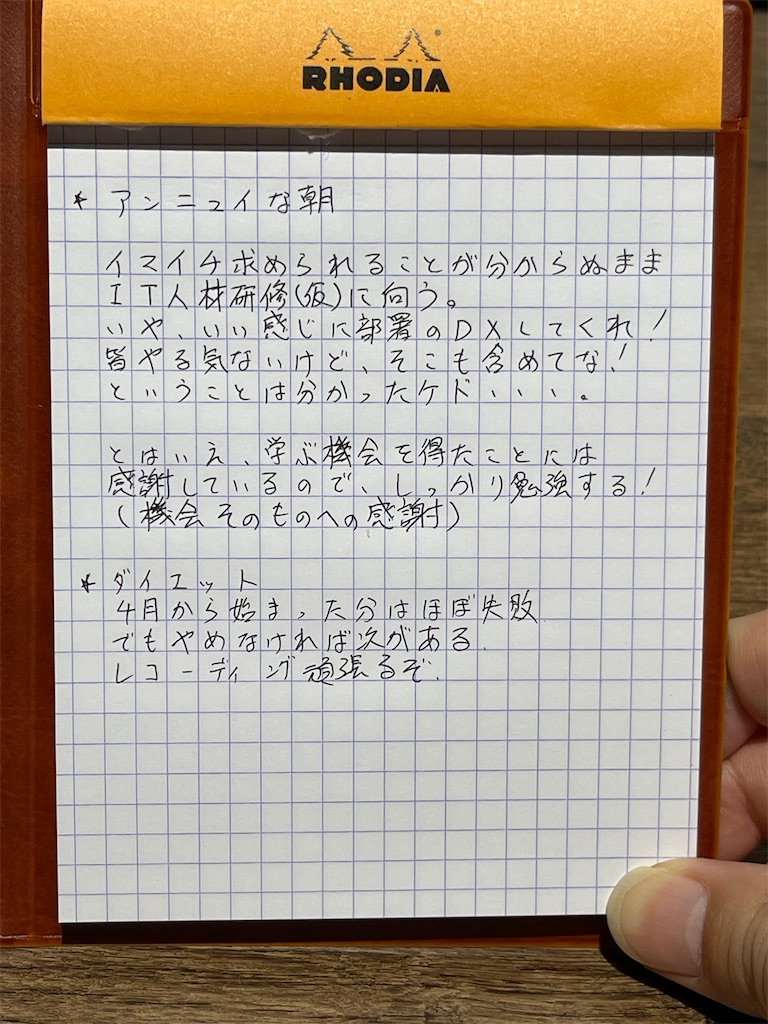 RHODIA
* アンニュイな朝
イマイチ求められることが分からぬまま
IT人材研修(仮)に向う。
いや、いい感じに部署のDXしてくれ!
皆やる気ないけど、そこも含めてな!
ということは分かったケド、、、。
とはいえ、学ぶ機会を得たことには
感謝しているので、しっかり勉強する!
(機会そのものへの感謝)
* ダイエット
4月から始まった分はほぼ失敗
でもやめなければ次がある.
レコーディング頑張るぞ.